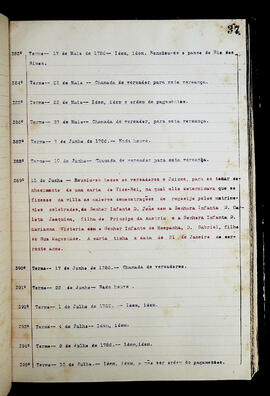 37
283º Termo-- 17 de Maio de 1786-- Idem, idem. Mandou-se a ponte do Rio dos
284º Termo-- 21 de Maio-- Chamada de vereador para esta vereança.
285º Termo-- 22 de Maio-- Idem, idem e ordem de pagamentos.
Termo-- 27 de Maio-- Chamada de vereador para esta vereança.
Termo-- 7 de Junho de 1786.-- Nada houve.
288º Termo-- 10 de Junho-- Chamada de vereador para esta vereança.
289º 11 de Junho-- Reuniu-se todos os vereadores e Juizes, para se tomar co-
nhecimento de uma carta do Vice-Rei, na qual elle determinava que se
fizesse na villa as maiores demonstrações de regosijo pelos matrimo-
nios celebrados, do Senhor Infante D. João com a Senhora Infanta D. Car-
lota Joaquina, filha do Principe da Austria e a Senhora Infanta D.
Marianna Victoria com o Senhor Infante de Hespanha, D. Gabriel, filho
de Sua Magestade. A carta tinha a data de 21 de Janeiro do cor-
rente anno.
290º Termo-- 17 de Junho de 1786.-- Chamada de vereadores.
291º Termo-- 22 de Junho-- Nada houve.
292º Termo-- 1 de Julho de 1786.-- Idem, idem.
293º Termo-- 4 de Julho-- Idem, idem.
294º Termo-- 8 de Julho de 1786.-- Idem, idem.
295º Termo-- 10 de Julho-- Idem, idem, e não ser ordem de pagamentos.